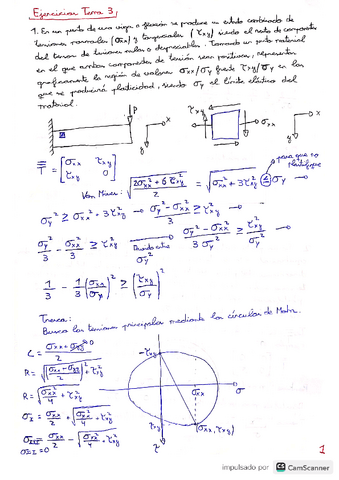 Ejercicios Tema 3,
1. En un punto de una viga a flexión se produce un estado combinado de
tensiones normales (σxx) y tangenciales (τxy) siendo el resto de componentes
del tensor de tensiones nulas o despreciables. Tomando un punto material
en el que ambas componentes de tensión sean positivas, representar
graficamente la región de valores σxx/σy frente τxy/σy en los
que se producirá plasticidad, siendo σy el límite elástico del
material.
P
x
y
τxy
σxx
x
y
para que no plastifique
T = [σxx τxy
τxy 0]
Von Mises: √((2σxx² + 6τxy²)/2) = √(σxx² + 3τxy²) ≤ σy →
σy² ≥ σxx² + 3τxy² → (σy² - σxx²)/3 ≥ τxy² →
σy²/3 - σxx²/3 ≥ τxy² Divido entre σy² (σy² - σxx²)/(3σy²) ≥ τxy²/σy² →
1/3 - 1/3 (σxx/σy)² ≥ (τxy/σy)²
Tresca:
Busco las tensiones principales mediante los círculos de Mohr.
C = (σxx + σyy)/2
R = √(((σxx - σyy)/2)² + τxy²)
R = √(σxx²/4 + τxy²)
σI = σxx/2 + √(σxx²/4 + τxy²)
σIII = σxx/2 - √(σxx²/4 + τxy²)
σII = 0
-τxy
σxx
σ
τxy
(σxx, τxy)
τ
1
impulsado por CS CamScanner